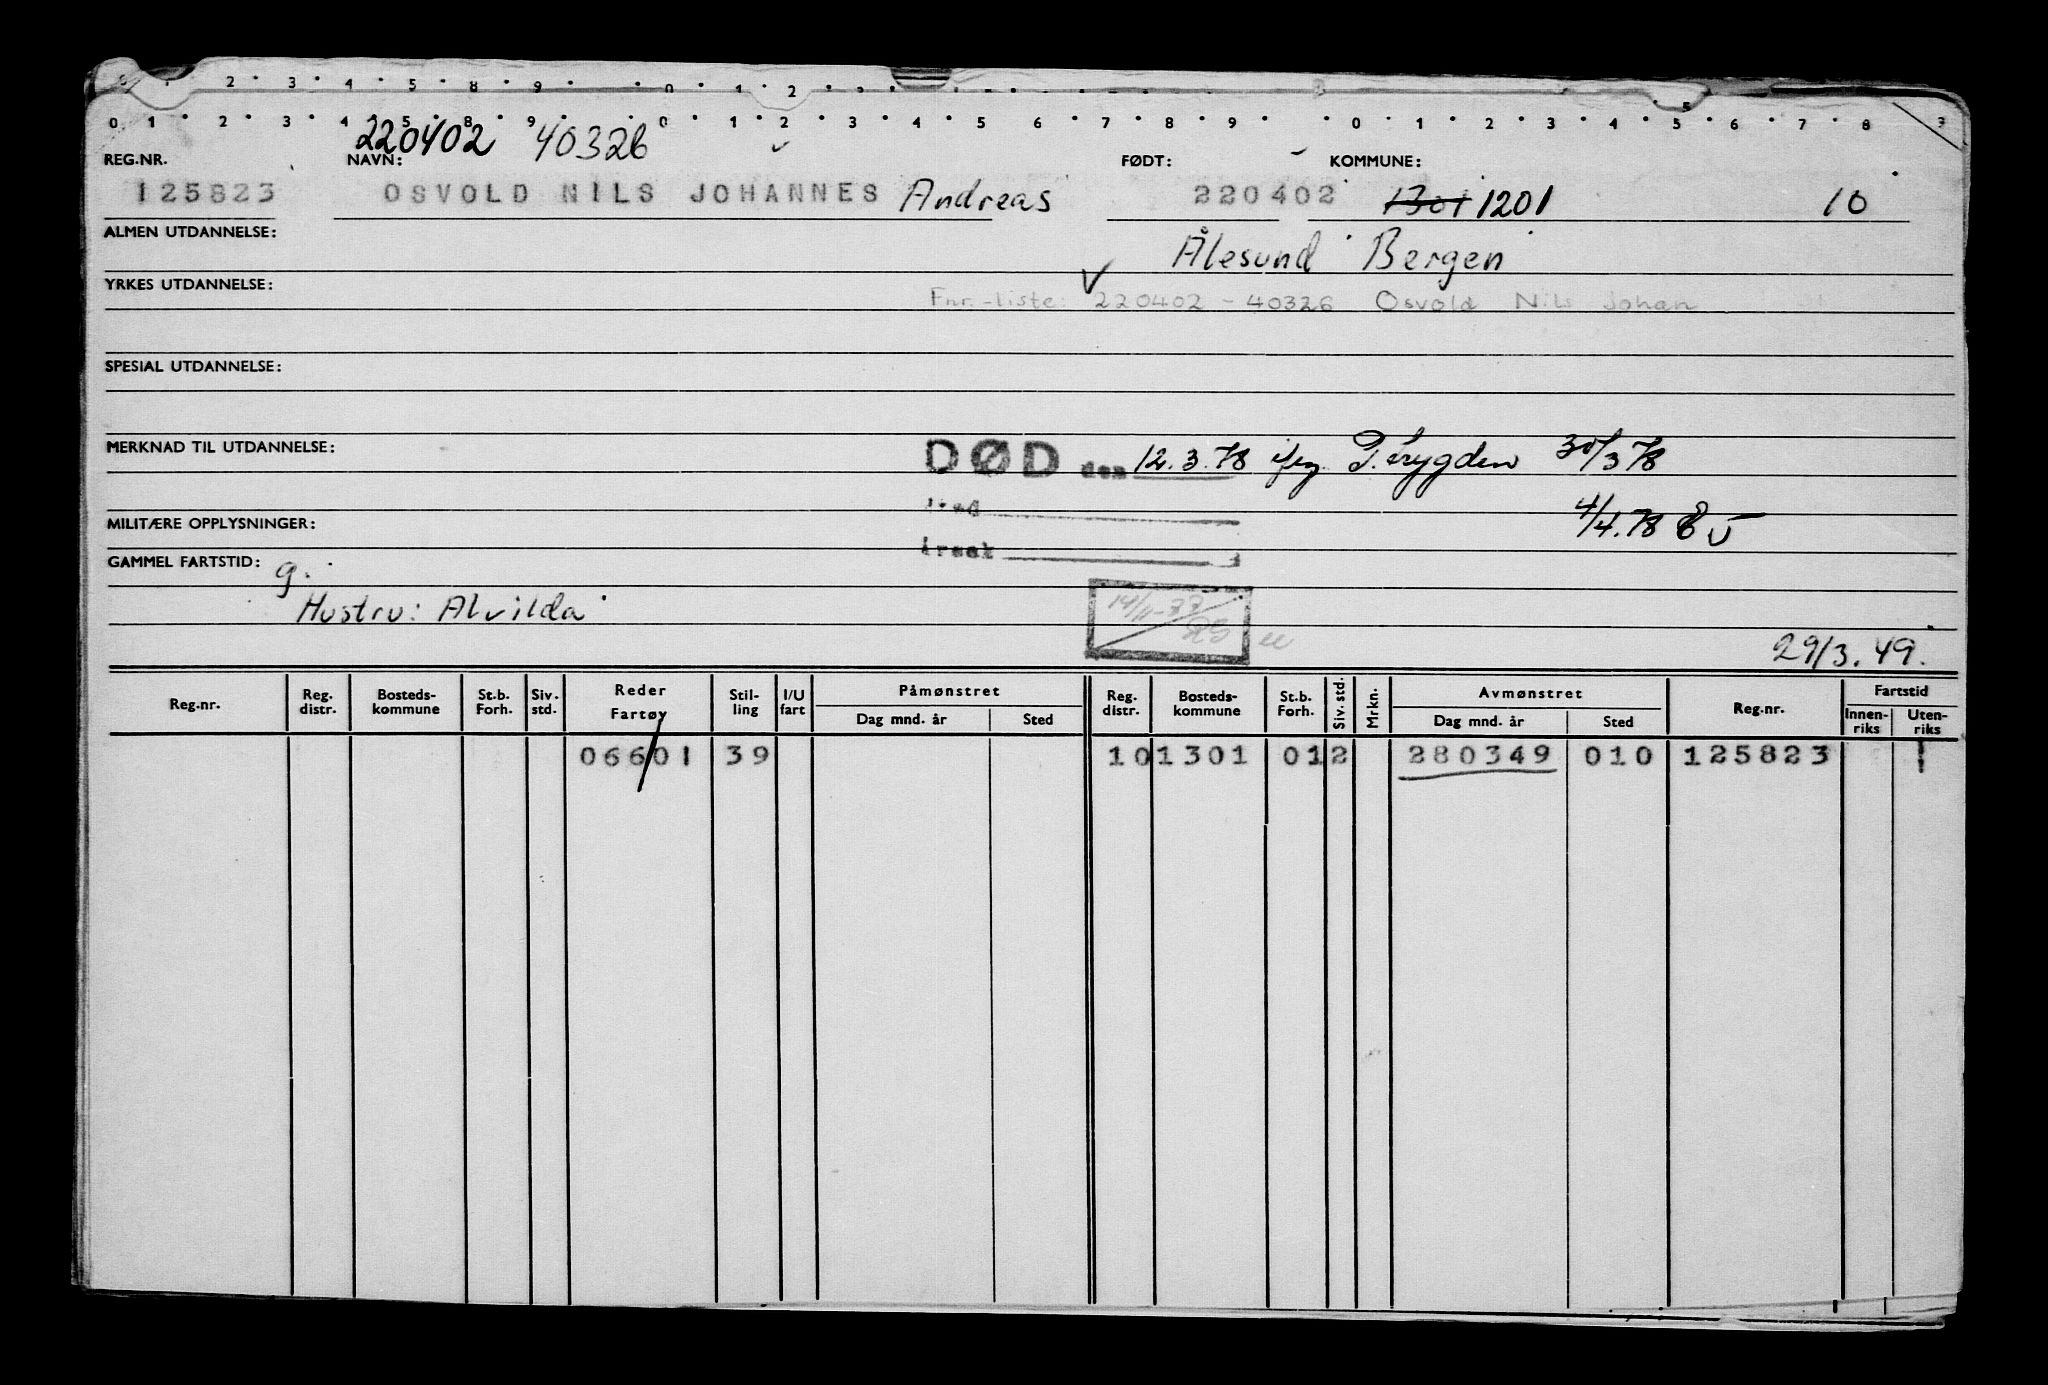 0 1 2 3 4 5 8 9 0 1 2
0 1 2 3 4 5 8 9 0 1 2 3 4 5 6 7 8 9 0 1 2 3 4 5 6 7 8
220402 40326
REG.NR. NAVN: FØDT: KOMMUNE:
125823 OSVOLD NILS JOHANNES Andreas 220402 1301 1201 10
ALMEN UTDANNELSE: Ålesund Bergen
YRKES UTDANNELSE: Fnr.-liste: 220402 - 40326 Osvold Nils Johan
SPESIAL UTDANNELSE:
MERKNAD TIL UTDANNELSE: DØD den 12.3.78 iflg. T.trygden 30/3 78
MILITÆRE OPPLYSNINGER: 4/4.78
årsak
GAMMEL FARTSTID: g.
Hustru: Alvilda
14/11-77
29/3.49.
Reg.nr. Reg. distr. Bosteds-kommune St.b. Forh. Siv. std. Reder Fartøy Stil-ling I/U fart Påmønstret Dag mnd. år Sted Reg. distr. Bosteds-kommune St.b. Forh. Siv. std. Mrkn. Avmønstret Dag mnd. år Sted Reg.nr. Fartstid Innen-riks Uten-riks
06601 39 10 1301 01 2 280349 010 125823 1